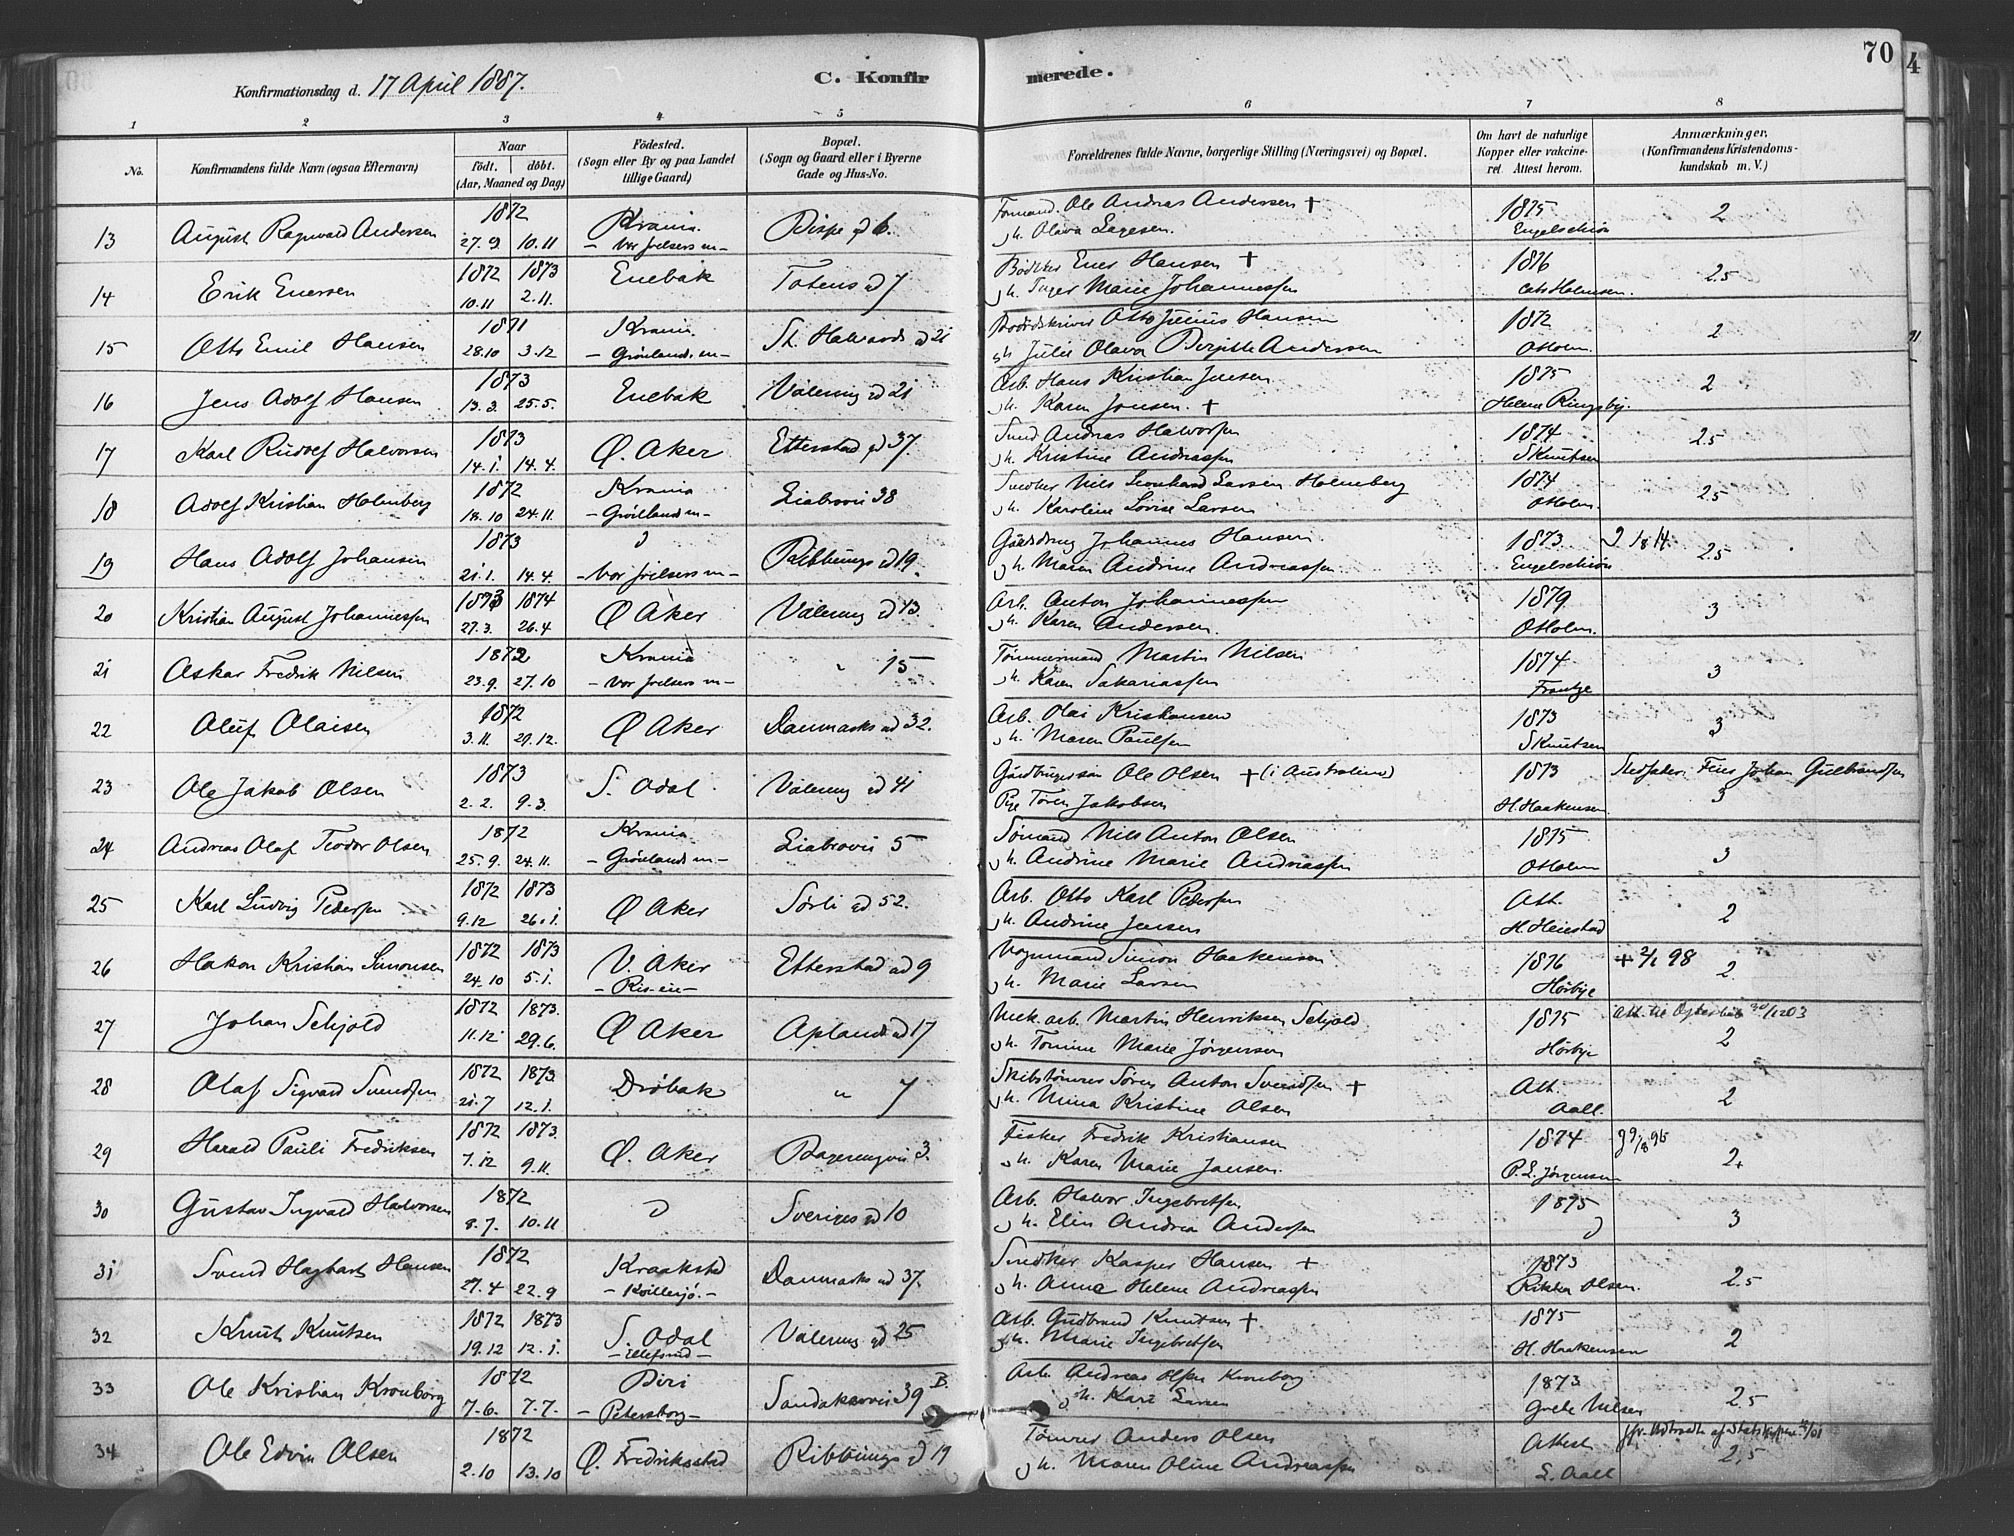 70
4
Konfirmationsdag d. 17 April 1887.
C. Konfirmerede.
1 2 3 4 5 6 7 8
No.
Konfirmandens fulde Navn (ogsaa Efternavn)
Naar
født. døbt.
(Aar, Maaned og Dag)
Fødested.
(Sogn eller By og paa Landet tillige Gaard)
Bopæl.
(Sogn og Gaard eller i Byerne Gade og Hus-No.
Forældrenes fulde Navne, borgerlige Stilling (Næringsvei) og Bopæl.
Om havt de naturlige Kopper eller vakcineret Attest herom.
Anmærkninger.
(Konfirmandens Kristendomskundskab m. V.)
13 August Ragnvald Andersen 1872 27.9. 10.11 Krania. - Vor frelsers m - Bispegd 6. Ole Andreas Andersen + 1875 2
h. Olava
14 Erik Enersen 1872 1873 10.11 2.11. Enebak Totens gd 7 Bødker Ener Hansen + 1876 2.5
h. Inger Marie Johannessen
15 Otto Emil Hansen 1871 28.10 3.12 Krania - Grønlands m - St. Halvards gd 21 Otto Julius Hansen 1872 2
h. Julie Olava Birgitte Andersen O Holm.
16 Jens Adolf Hansen 1873 13.3. 25.5. Enebak Válereng gd 21 Arb. Hans Kristian Jensen 1875 2
h. Karen Jonsen. + Helene Ringsby.
17 Karl Rudolf Halvorsen 1873 14.1. 14.4. Ø. Aker Etterstad gd 37. Smed Andreas Halvorsen 1874 2.5
h. Kristine Andreassen S Knutsen
18 Adolf Kristian Holmberg 1872 18.10 24.11. Krania - Grønlands m - Liabrovei 38 Snedker Nils Leonhard Larsen Holmberg 1874 2.5
h. Karoline Lovise Larsen O Holm.
19 Hans Adolf Johansen 1873 21.1. 14.4. - Vor frelsers m - Ribbungs gd 19. Johannes Hansen 1873 2.5
h. Maren Andrine Andreassen
20 Kristian August Johannessen 1873 1874 27.3. 26.4 Ø Aker Válereng gd 43. Arb. Anton Johannessen 1879 3
h. Karen Andersen. O Holm.
21 Oskar Fredrik Nilsen 1872 23.9. 27.10 Krania - Vor frelsers m - " 15 Tømmermand Martin Nilsen 1874 3
h. Karen Sakariassen
22 Oluf Olaisen 1872 3.11. 29.12. Ø Aker Danmarks gd 32. Arb. Olai Kristiansen 1873 3
h. Maren Paulsen S Knutsen
23 Ole Jakob Olsen 1873 2.2. 9.3. S. Odal. Válereng gd 41 Gårdbrugersøn Ole Olsen + (i Australien) 1873 Stedfader: Johan Gulbrandsen 3
Pige Toren Jakobsen H. Haakensen
24 Andreas Olaf Teodor Olsen 1872 25.9. 24.11. Krania - Grønlands m - Liabrovei 5 Sømand Nils Anton Olsen 1875 3
h. Andrine Marie Andreassen O Holm
25 Karl Ludvig Pedersen 1872 1873 9.12 26.1. Ø Aker Sørli gd 52. Arb. Otto Karl Pedersen Att. 2
h. Andrine Jensen H. Heiestad
26 Hakon Kristian Simonsen 1872 1873 24.10 5.1. V. Aker - Ris - Etterstad gd 9 Vognmand Simon Haakensen 1876 + 2/1 98 2
h. Marie Larsen Hørbye
27 Johan Schjold 1872 1873. 11.12 29.6. Ø Aker Oplands gd 17 Mek. arb. Martin Henriksen Schjold 1875 2
h. Tomine Marie Jørgensen Hørbye
28 Olaf Sigvard Svendsen 1872 1873. 21.7 12.1. Drøbak " 7 Skibstømrer Søren Anton Svendsen + Att. 2
h. Mina Kristine Olsen Aall.
29 Harald Pauli Fredriksen 1872 1873. 7.12 9.11. Ø. Aker 3. Fisker Fredrik Kristiansen 1874 2.
h. Karen Marie Jansen. P. L. Jørgensen
30 Gustav Ingvald Halvorsen 1872 8.7. 10.11 Sveriges gd 10 Arb. Halvor Ingebretsen 1875 3
h. Elin Andrea Andersen
31 Svend Hagbart Hansen 1872 27.4 22.9 Kraakstad Danmarks gd 37. Snedker Kasper Hansen + 1873 2.5
h. Anna Helene Andreassen Rikka Olsen.
32 Knut Knutsen 1872 1873 19.12 12.1. S. Odal Válereng gd 25 Arb. Gudbrand Knutsen + 1875 2
h. Marie Ingebretsen H. Haakensen
33 Ole Kristian Kronborg 1872 7.6. 7.7. Biri - Petersborg - Sandakervei 39 B. Arb. Andreas Olsen Kronborg 1873 2.5
h. Kari Larsen Grethe Nilsen
34 Ole Edvin Olsen 1872 2.10 13.10 Ø. Fredriksstad Ribbungs gd 19 Tømrer Anders Olsen Attest 2,5
h. Maren Oline Andreassen L. Aall